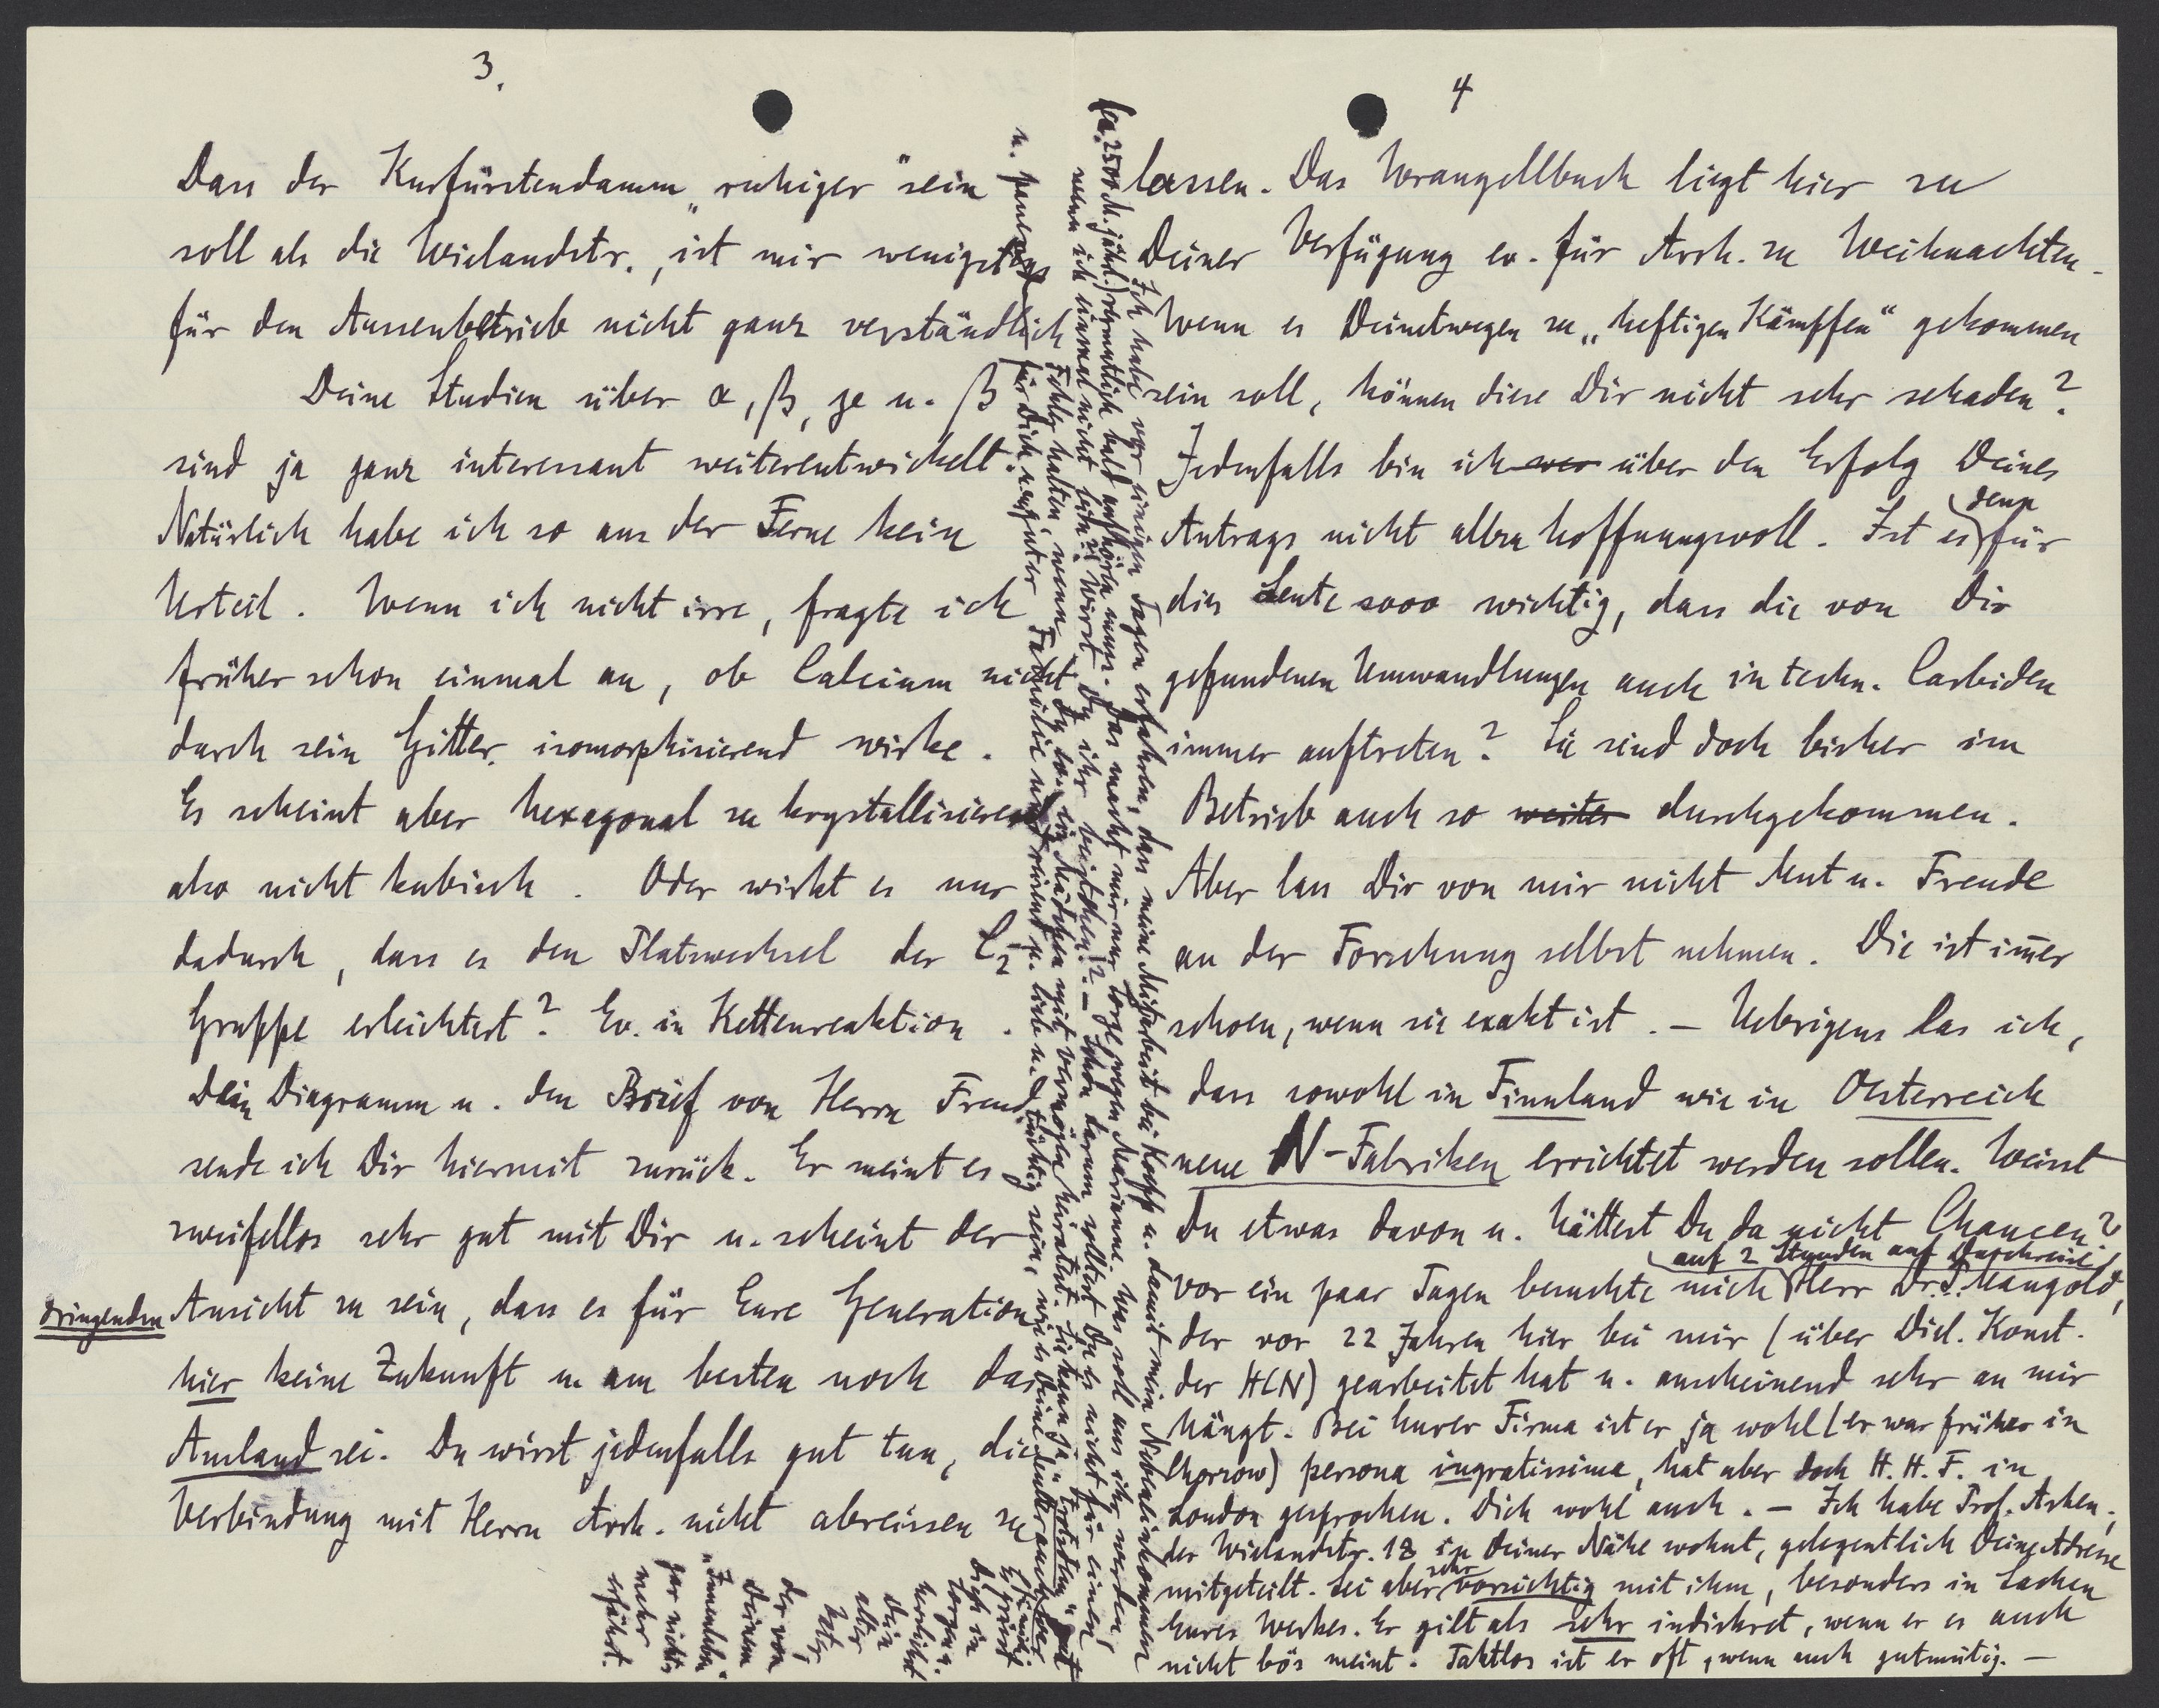 3.
Dass der Kurfürstendamm „ruhiger" sein
soll als die Wielandstr., ist mir wenigstens
für den Aussenbetrieb nicht ganz verständlich
Deine Studien über α, β, γ u. β
sind ja ganz interessant weiterentwickelt.
Natürlich habe ich so aus der Ferne kein
Urteil. Wenn ich nicht irre, fragte ich
früher schon einmal an, ob Calcium nicht
durch sein Gitter isomorphisierend wirke.
Es scheint aber hexagonal zu krystallisieren
also nicht kubisch. Oder wirkt es nur
dadurch, dass es den Platzwechsel der C2
Gruppe erleichtert? Ev. in Kettenreaktion.
Dein Diagramm u. den Brief von Herrn Freud
sende ich Dir hiermit zurück. Er meint es
zweifellos sehr gut mit Dir u. scheint der
dringenden Ansicht zu sein, dass es für Eure Generation
hier keine Zukunft u. am besten noch das
Ausland sei. Du wirst jedenfalls gut tun, die
Verbindung mit Herrn Arch. nicht abreissen zu
4
lassen. Das Wrangellbuch liegt hier zu
Deiner Verfügung ev. für Arch. zu Weihnachten.
Wenn es Deinetwegen zu „heftigen Kämpfen" gekommen
sein soll, können diese Dir nicht sehr schaden?
Jedenfalls bin ich über den Erfolg Deines
Antrags nicht allzu hoffnungsvoll. Ist es denn für
die Leute sooo wichtig, dass die von Dir
gefundenen Umwandlungen auch in techn. Carbiden
immer auftreten? Sie sind doch bisher im
Betrieb auch so weiter durchgekommen.
Aber lass Dir von mir nicht Mut u. Freude
an der Forschung selbst nehmen. Die ist im̄er
schoen, wenn sie exakt ist. – Uebrigens las ich,
dass sowohl in Finnland wie in Oesterreich
neue N-Fabriken errichtet werden sollen. Weisst
Du etwas davon u. hättest Du da nicht Chancen?
Vor ein paar Tagen besuchte mich auf 2 Stunden auf Durchreise Herr Dr. P. Mangold,
der vor 22 Jahren hier bei mir (über Diel. Konst.
der HCN) gearbeitet hat u. anscheinend sehr an mir
hängt. Bei Eurer Firma ist er ja wohl (er war früher in
Chorzow) persona ingratissima, hat aber doch H. H. F. in
London gesprochen. Dich wohl auch. – Ich habe Prof. Asken.,
der Wielandstr. 18 in Deiner Nähe wohnt, gelegentlich Deine Adresse
mitgeteilt. Sei aber sehr vorsichtig mit ihm, besonders in Sachen
Eures Werkes. Er gilt als sehr indiskret, wenn er es auch
nicht bös meint. Taktlos ist er oft, wenn auch gutmütig. –
Ich habe vor einigen Tagen erfahren, dass meine Mitarbeit bei Kopp u. damit mein Nebeneinkommen
(ca. 2500 M. jährl.) vermutlich bald aufhören muss. Das macht mir nur Sorge wegen Marianne. Was soll aus ihr werden,
wenn ich einmal nicht bin? Wirst Du ihr beistehen? – Schon darum solltest Du es nicht für einen
Fehler halten, wenn Du ev. ein Mädchen mit Vermögen heiratest. Sie kann ja „trotzdem" gut
u. passend für Dich, aus guter Familie u. reizend u. lieb u. tüchtig sein, wie es Deine Mutter auch war
Es grüsst
Dich in
Sorge u.
herzlichst
Dein
alter
Vater,
der von
Deinem
„Innenleben"
gar nichts
mehr
erfährt.